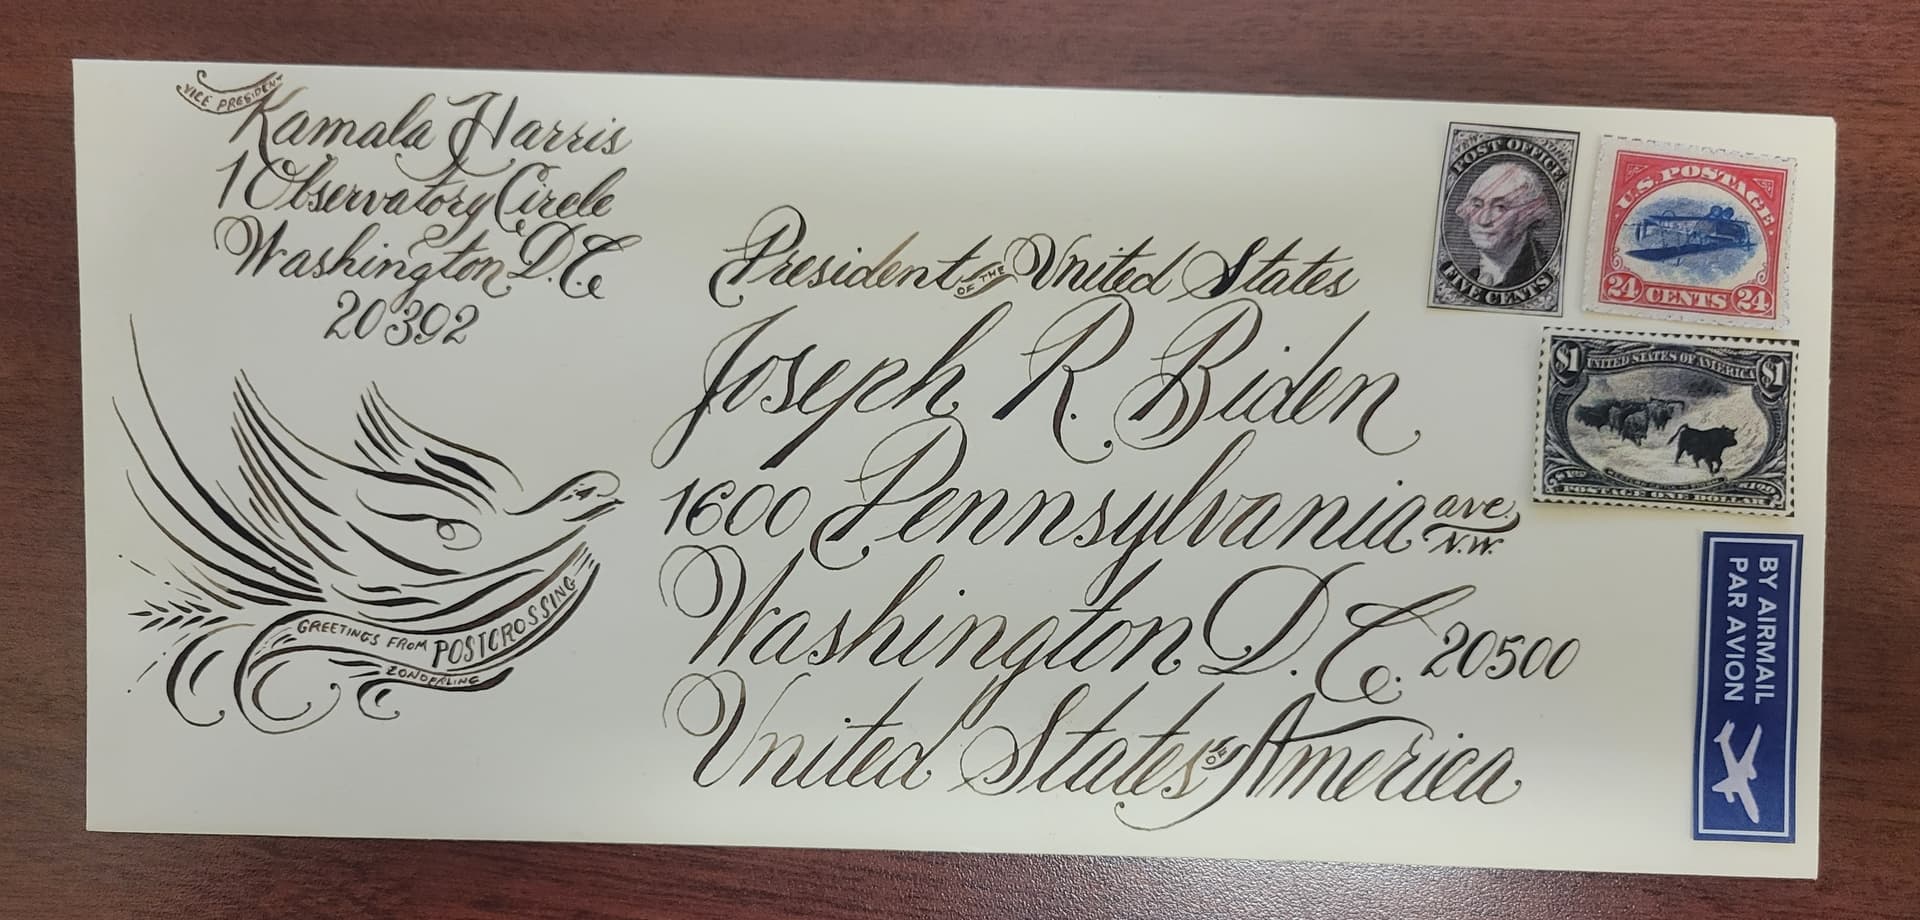 VICE PRESIDENT
Kamala Harris
1 Observatory Circle
Washington D.C
20392
President OF THE United States
Joseph R. Biden
1600 Pennsylvania ave. N.W.
Washington D.C. 20500
United States OF America
GREETINGS FROM POSTCROSSING
ZONDERLING
POST OFFICE
FIVE CENTS
U.S. POSTAGE
24 CENTS 24
$1 UNITED STATES OF AMERICA $1
POSTAGE ONE DOLLAR
BY AIRMAIL
PAR AVION